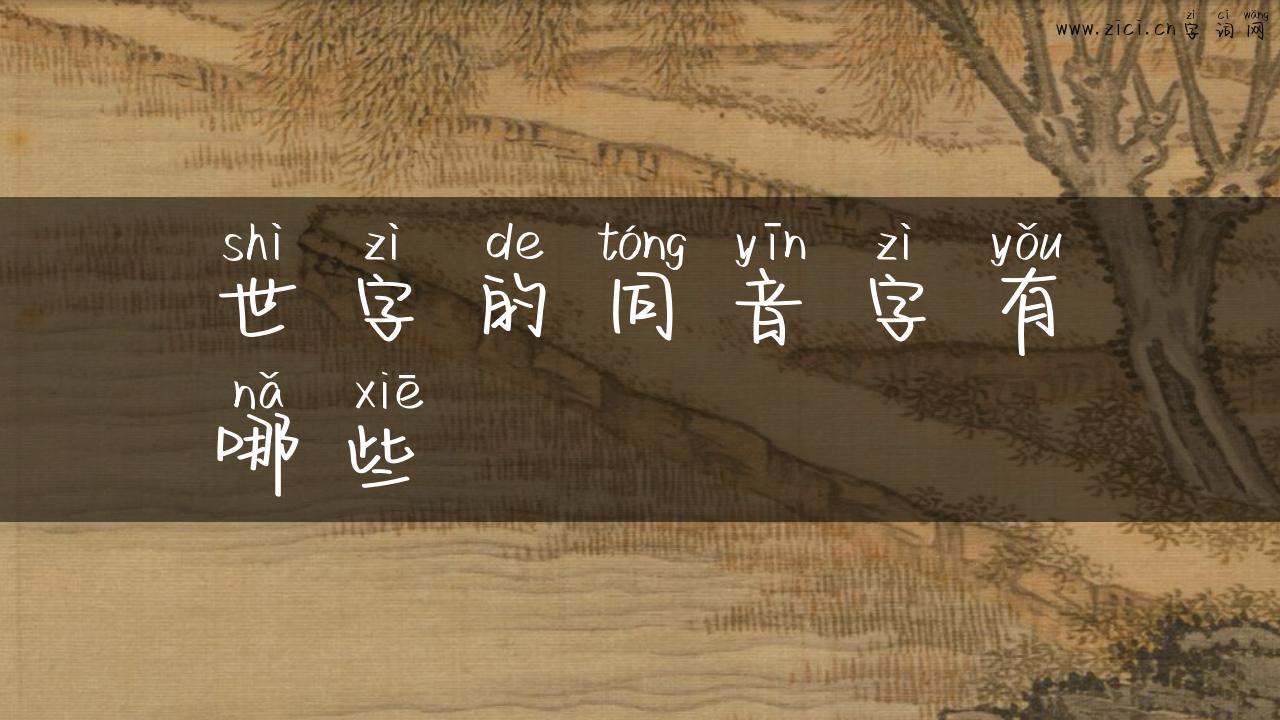 zì cí wǎng
www.zici.cn字词网
shì zì de tóng yīn zì yǒu
世字的同音字有
nǎ xiē
哪些